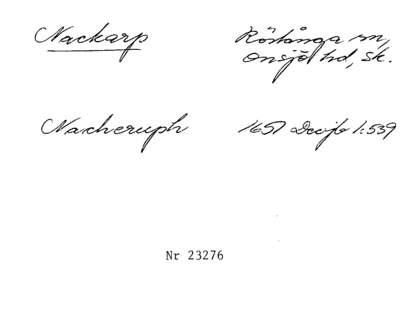 Nackarp Röstånga sn,
Onsjö hd, Sk.
Nacheruph 1657 Dvjb 1:539
Nr 23276